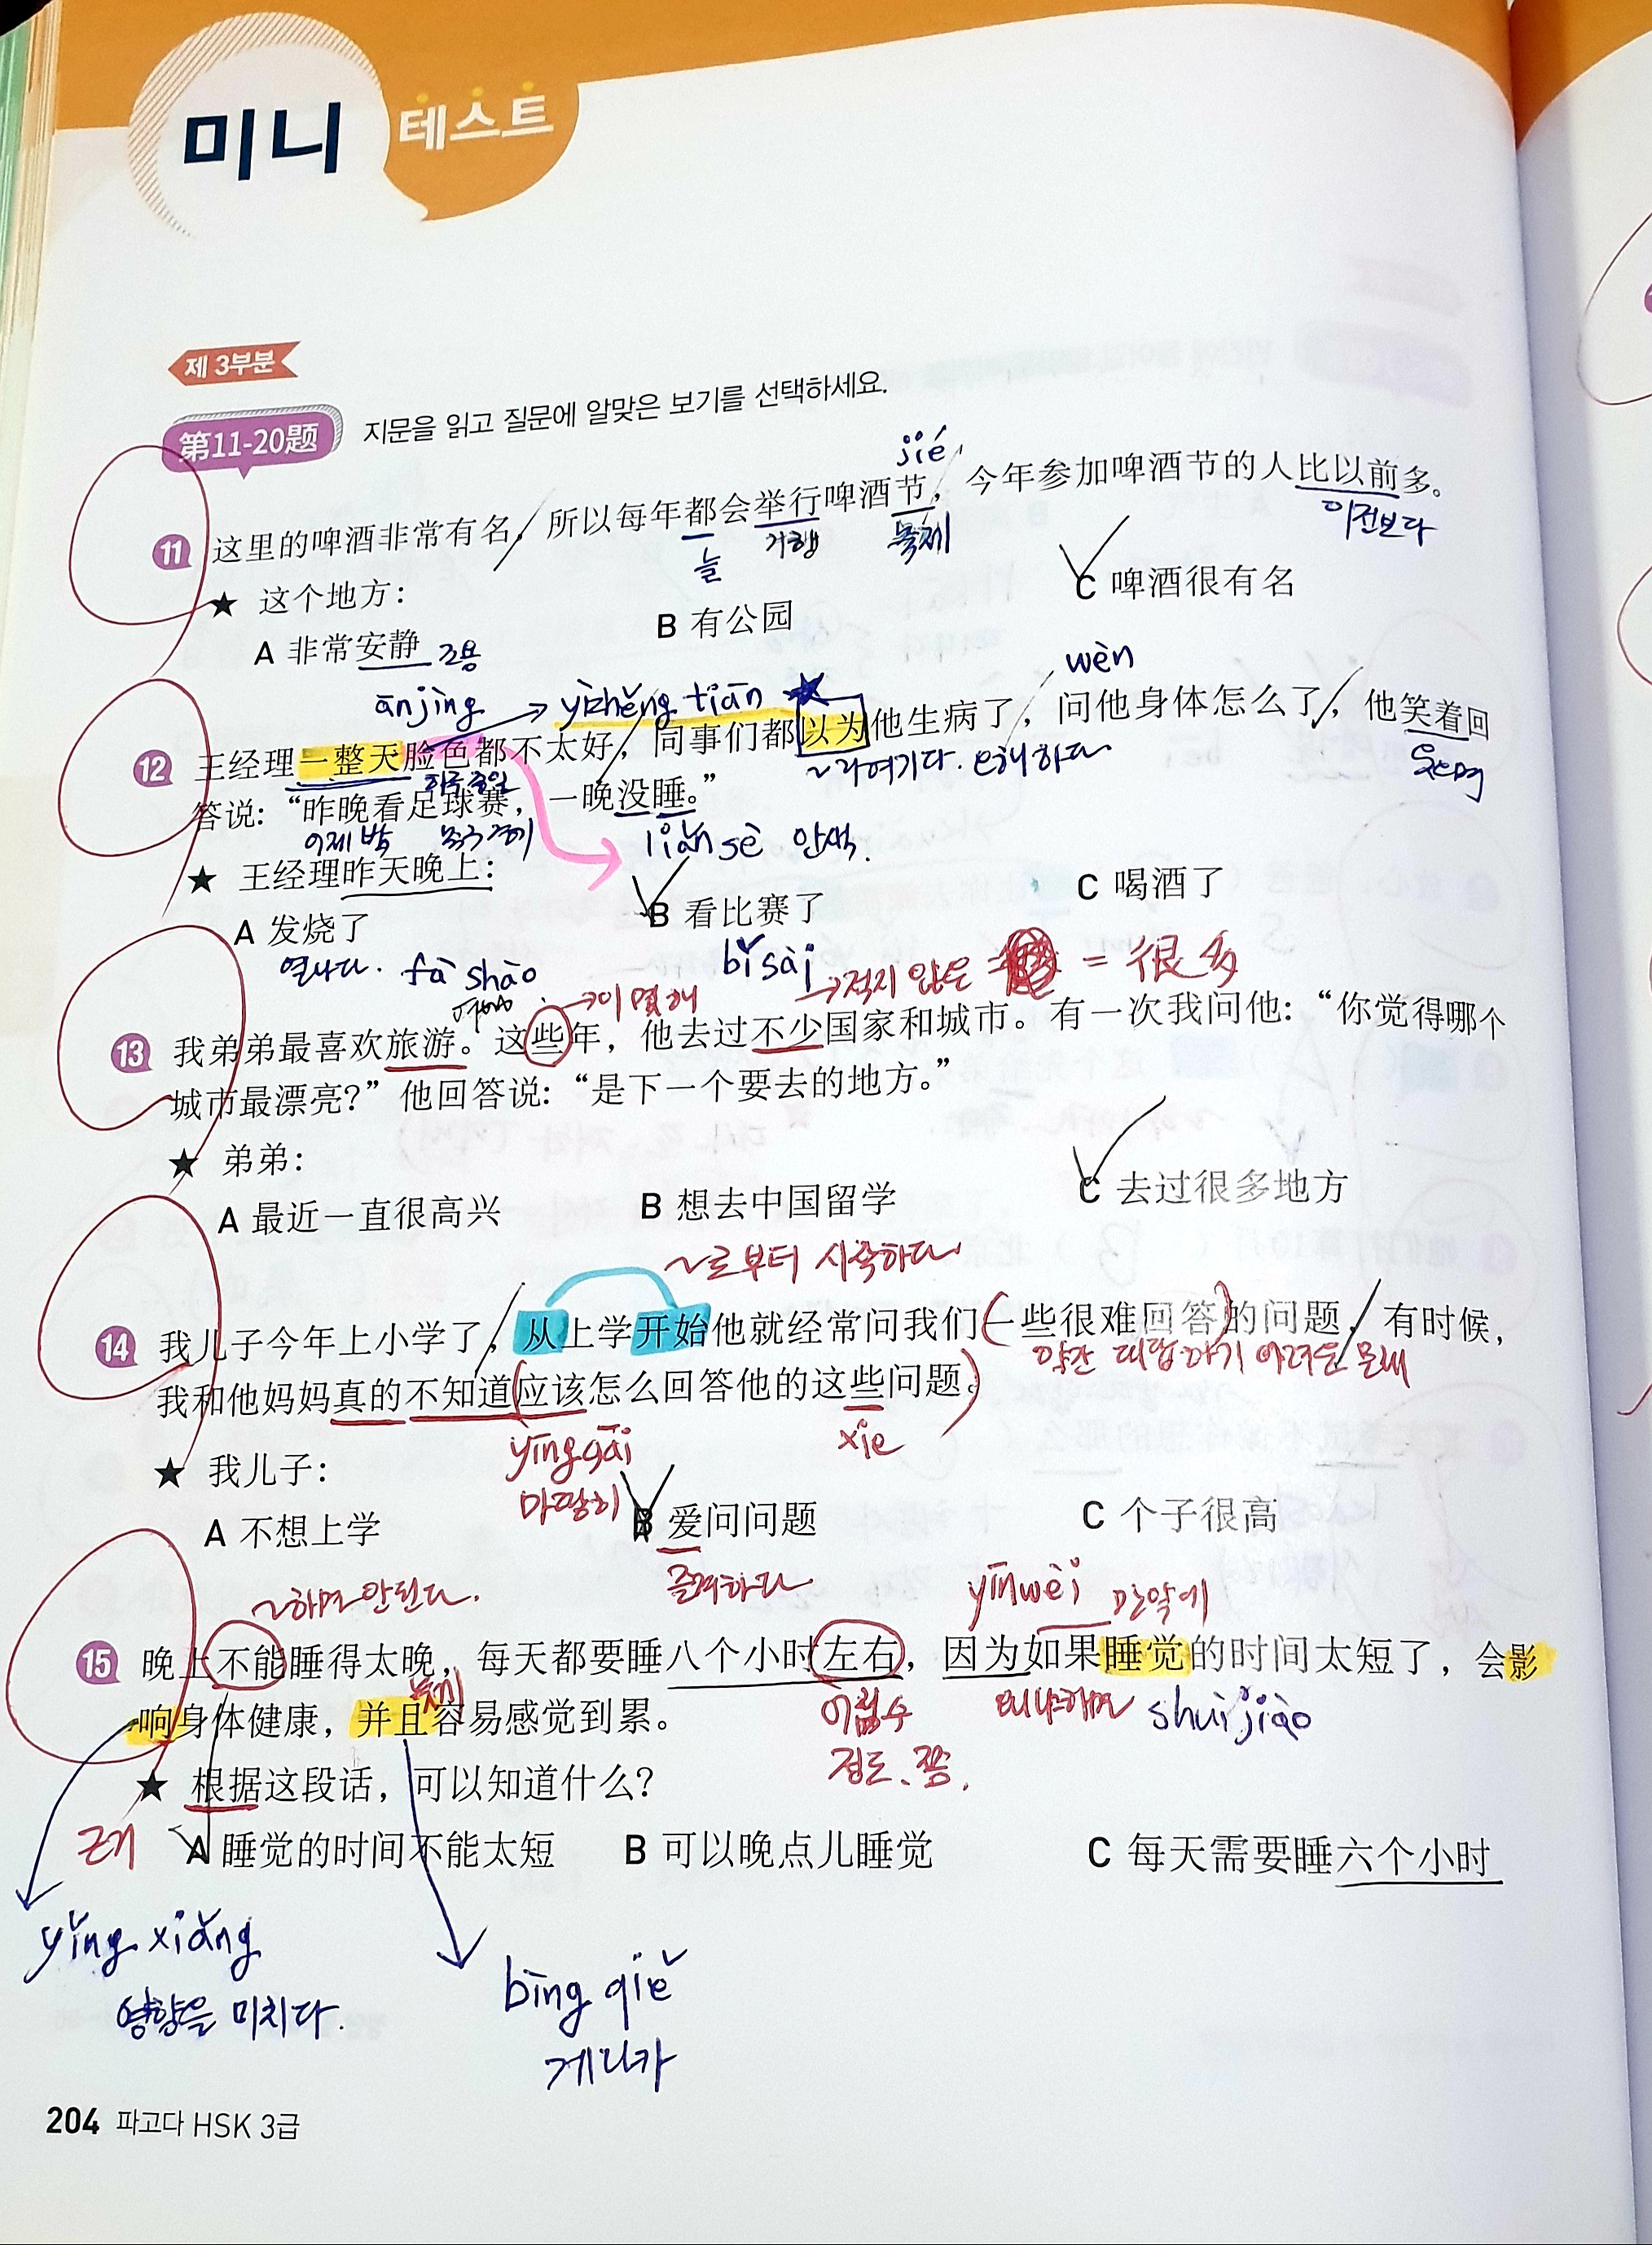 미니 테스트
제 3부분
第11-20题 지문을 읽고 질문에 알맞은 보기를 선택하세요.
jié
11 这里的啤酒非常有名，所以每年都会举行啤酒节，今年参加啤酒节的人比以前多。
늘 거행 이전보다
★ 这个地方：
A 非常安静 B 有公园 C 啤酒很有名
고용
wèn
ānjìng yìzhěng tiān
12 王经理一整天脸色都不太好，同事们都以为他生病了，问他身体怎么了，他笑着回
~라여기다. 웃으며
答说：“昨晚看足球赛，一晚没睡。”
어제 밤
liǎn sè 안색.
★ 王经理昨天晚上：
A 发烧了 B 看比赛了 C 喝酒了
열나다. fā shāo bǐ sài
→적지 않은 = 很多
→이 몇해
13 我弟弟最喜欢旅游。这些年，他去过不少国家和城市。有一次我问他：“你觉得哪个
城市最漂亮？”他回答说：“是下一个要去的地方。”
★ 弟弟：
A 最近一直很高兴 B 想去中国留学 C 去过很多地方
~로부터 시작하다
14 我儿子今年上小学了，从上学开始他就经常问我们一些很难回答的问题，有时候，
我和他妈妈真的不知道应该怎么回答他的这些问题。
yīnggāi xiē
마땅히
★ 我儿子：
A 不想上学 B 爱问问题 C 个子很高
즐겨하다
~하면 안된다. yīnwèi 만약에
15 晚上不能睡得太晚，每天都要睡八个小时左右，因为如果睡觉的时间太短了，会影
响身体健康，并且容易感觉到累。
왜냐하면 shuìjiào
정도、쯤.
★ 根据这段话，可以知道什么？
근거
A 睡觉的时间不能太短 B 可以晚点儿睡觉 C 每天需要睡六个小时
yǐng xiǎng
영향을 미치다.
bīng qiě
게다가
204 파고다 HSK 3급